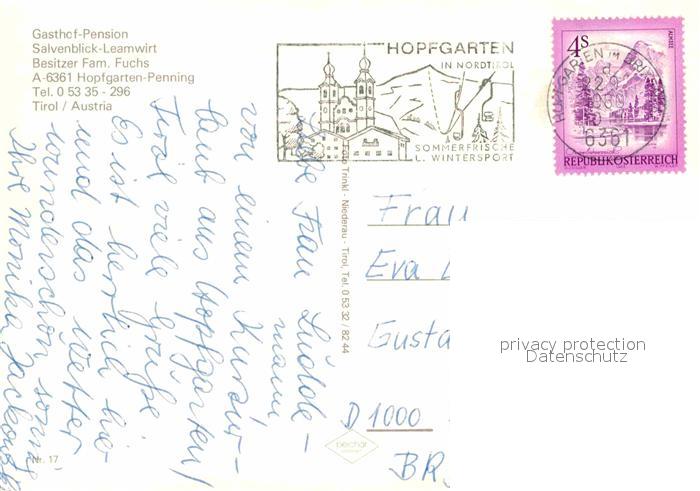 Gasthof-Pension
Salvenblick-Leamwirt
Besitzer Fam. Fuchs
A-6361 Hopfgarten-Penning
Tel. 0 53 35 - 296
Tirol / Austria
HOPFGARTEN
IN NORDTIROL
SOMMERFRISCHE
U. WINTERSPORT
4S
ALMSEE
REPUBLIK ÖSTERREICH
6361
Liebe Frau Lüdde-
mann
von einem Kurzur-
laub aus Hopfgarten/
Tirol viele Grüße
Es ist herrlich hier
und das Wetter
wunderschön sonnig
Ihre Monika
Foto Trinkl - Niederau - Tirol, Tel. 0 53 32 / 82 44
Frau
Eva
Gusta
D 1000
BR.
peichar
Nr. 17
privacy protection
Datenschutz